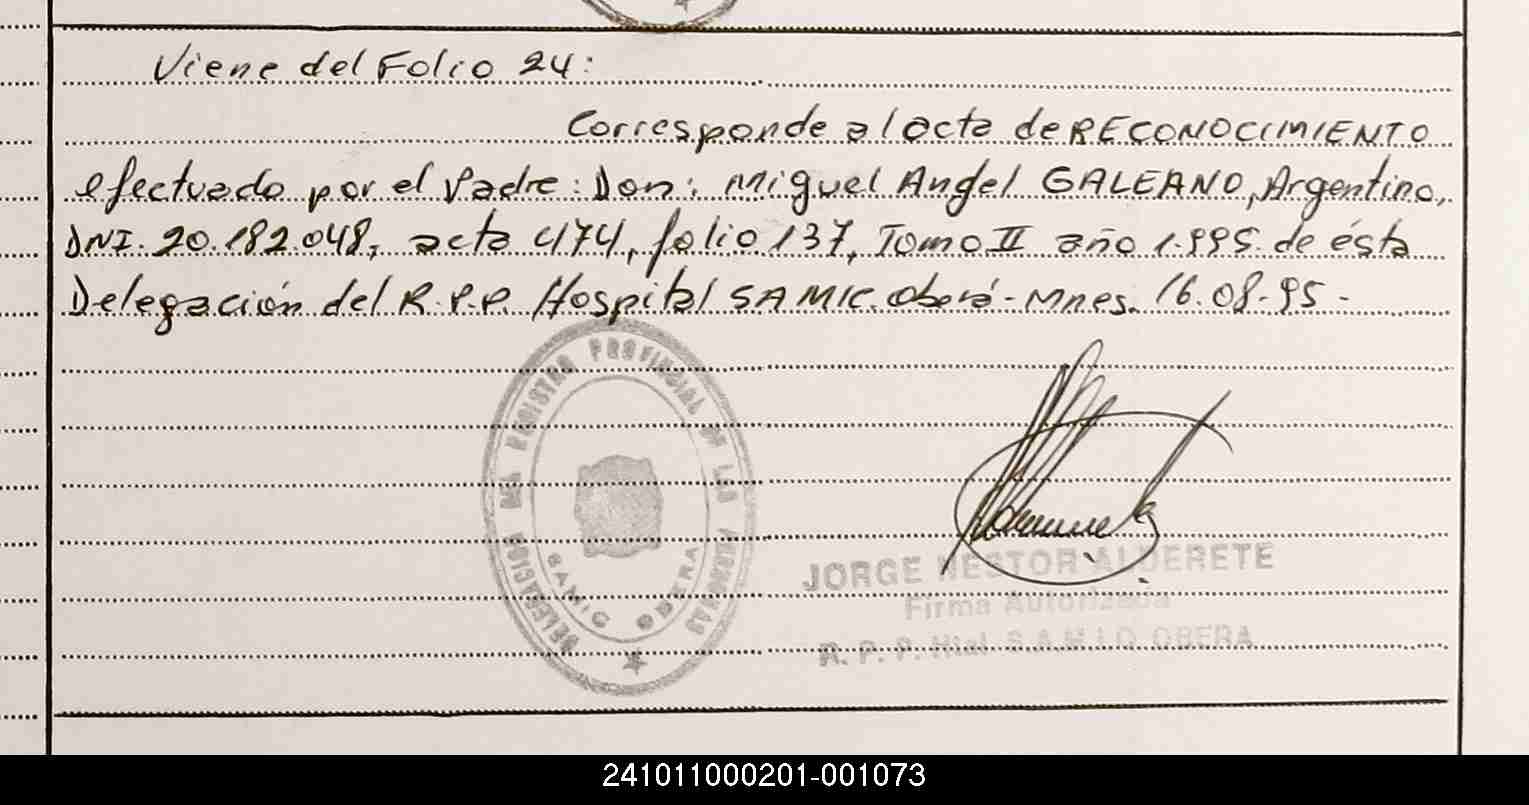 Viene del Folio 24:
Corresponde al acta de RECONOCIMIENTO
efectuado por el Padre: Don: Miguel Angel GALEANO, Argentino,
DNI. 20.182.048, acta 474, folio 137, Tomo II año 1.995. de ésta
Delegación del R.P.P. Hospital SAMIC. Oberá - Mnes. 16.08.95 -
DELEGACION DEL REGISTRO PROVINCIAL DE LAS PERSONAS
SAMIC OBERA
JORGE NESTOR ALDERETE
Firma Autorizada
R. P. P. Htal. S.A.M.I.C. OBERA
241011000201-001073